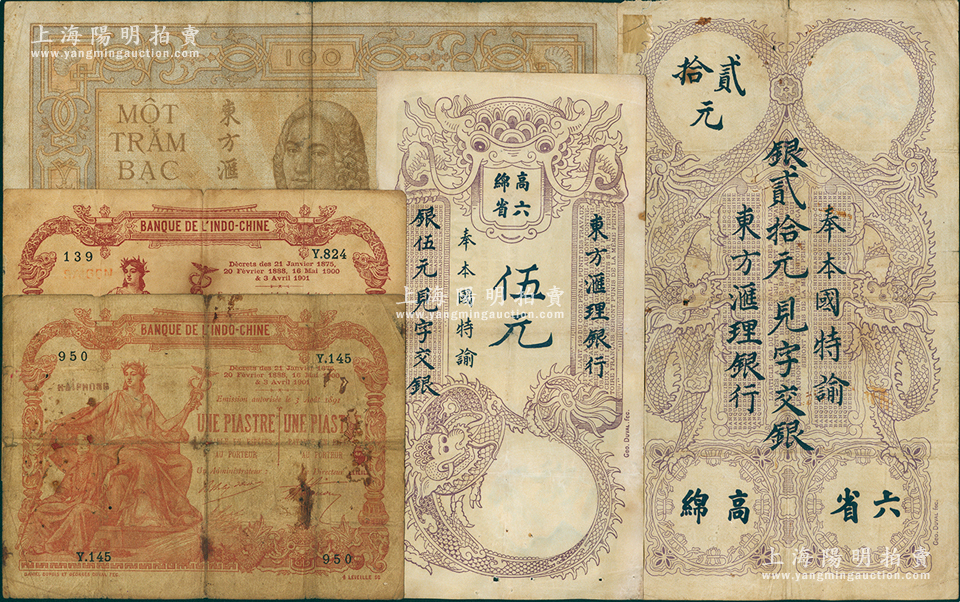 上海陽明拍賣
www.yangmingauction.com
100
MỘT
TRĂM
BẠC
東方滙
BANQUE DE L'INDO-CHINE
139
Y.824
Décrets des 21 Janvier 1875,
20 Février 1888, 16 Mai 1900
& 3 Avril 1901
BANQUE DE L'INDO-CHINE
950
Y.145
HAÏPHONG
Décrets des 21 Janvier 1875,
20 Février 1888, 16 Mai 1900
& 3 Avril 1901
Emission autorisée le 3 Août 1891
UNE PIASTRE
UNE PIAST
AU PORTEUR
AU PORTEUR
Un Administrateur :
Directeur
Y.145
950
DANIEL DUPUIS ET GEORGES DUVAL FEC.
高綿
六省
東方滙理銀行
伍元
奉本國特諭
銀伍元見字交銀
GEO. DUVAL fec.
上海陽明拍賣
www.yangmingauction.com
貳拾元
奉本國特諭
銀貳拾元見字交銀
東方滙理銀行
六省
高綿
GEO. DUVAL fec.
上海陽明拍賣
www.yangmingauction.com